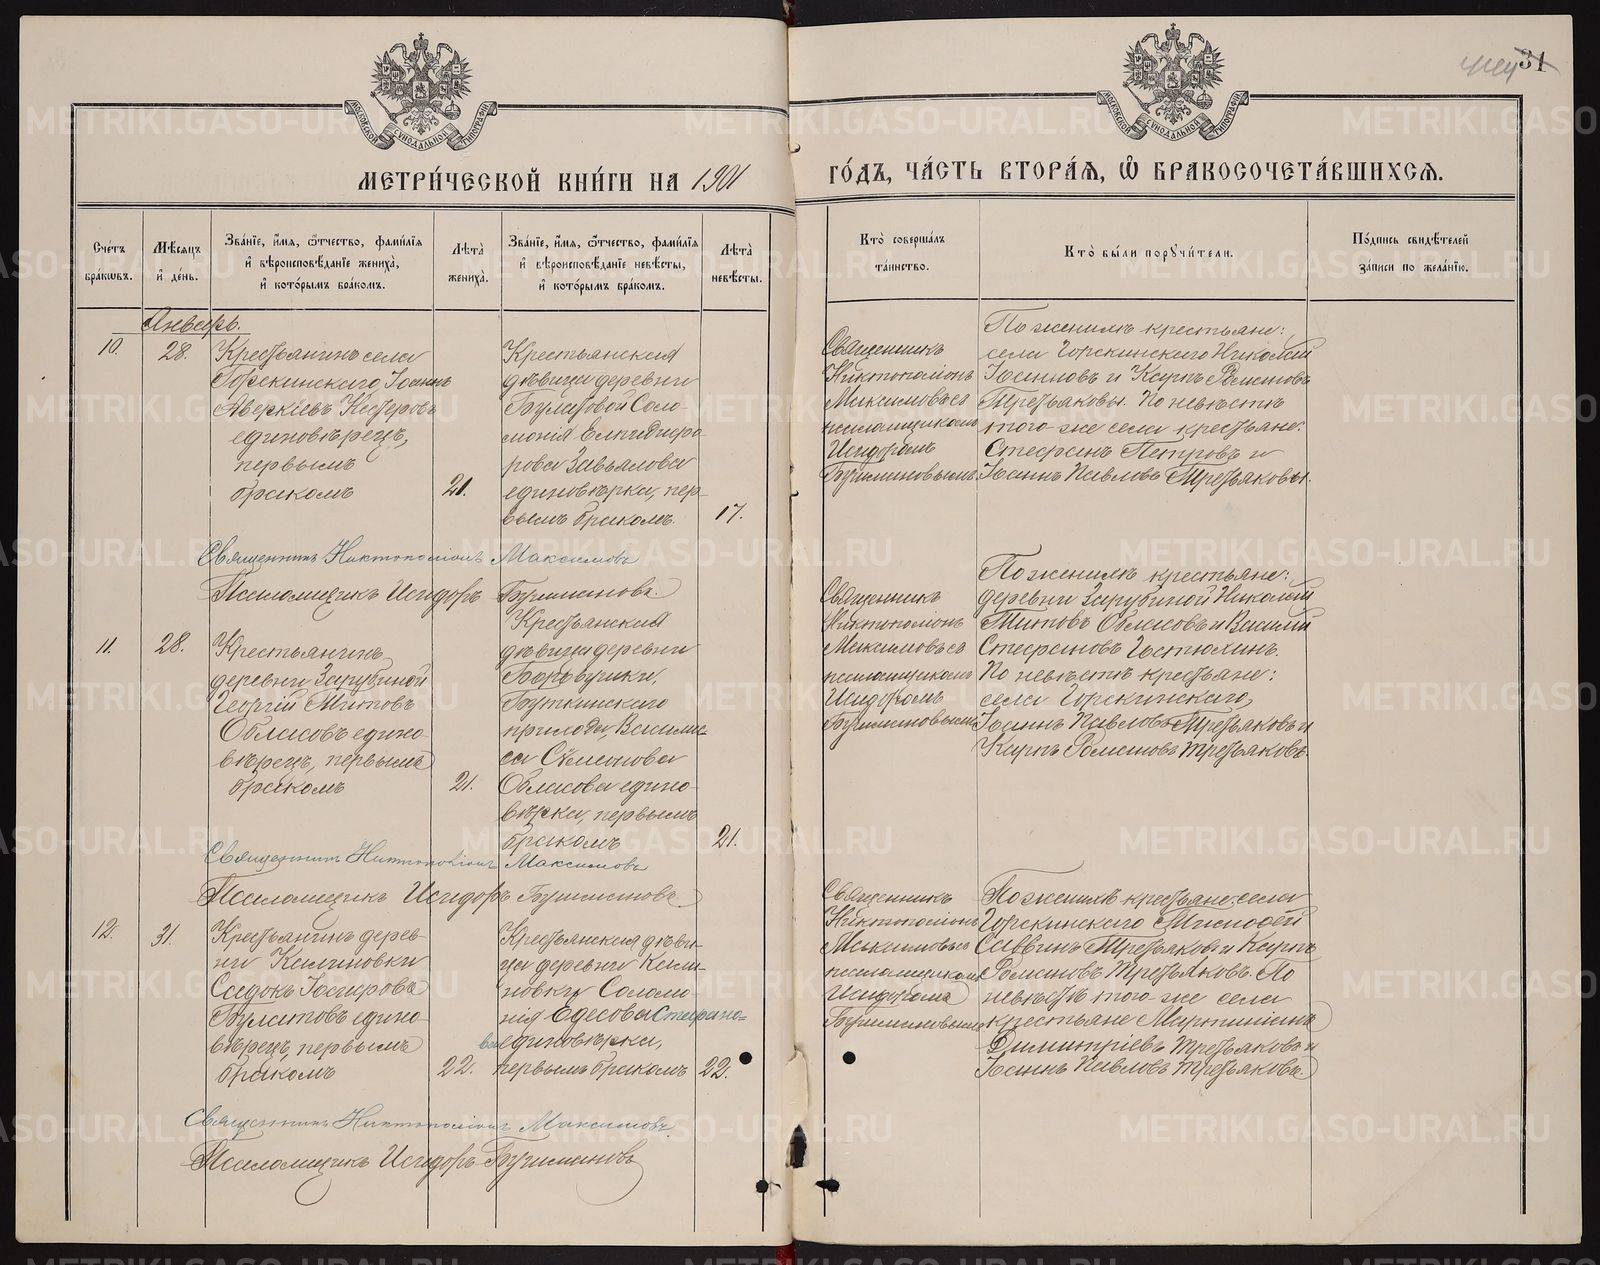 31
МЕТРИ́ЧЕСКОЙ КНИ́ГИ НА 1901
ГО́ДЪ, ЧА́СТЬ ВТОРА́Я, Ѿ БРАКОСОЧЕТА́ВШИХСЯ.
Сче́тъ бра́кωвъ.
Мѣ́сяцъ и҆ де́нь.
Зва́нїе, и҆́мя, ѻ҆́тчество, фами́лїя и҆ вѣроисповѣ́данїе жениха̀, и҆ кото́рымъ бра́комъ.
Лѣта̀ жениха̀.
Зва́нїе, и҆́мя, ѻ҆́тчество, фами́лїя и҆ вѣроисповѣ́данїе невѣ́сты, и҆ кото́рымъ бра́комъ.
Лѣта̀ невѣ́сты.
Кто̀ соверша́лъ та́инство.
Кто̀ бы́ли порꙋчи́тели.
По́дпись свидѣ́телей за́писи по жела́нїю.
Январь.
10.
28.
Крестьянинъ села
Горскинскаго Іоаннъ
Аверкіевъ Нестеровъ
единовѣрецъ,
первымъ
бракомъ
21.
Крестьянская
дѣвица деревни
Булатовой Соло-
монія Елпидифо-
рова Завьялова
единовѣрка, пер-
вымъ бракомъ.
17.
Священникъ
Никтополіонъ
Максимовъ съ
псаломщикомъ
Исидоромъ
По женихѣ крестьяне:
села Горскинскаго Николай
Іоанновъ и Карпъ Романовъ
Третьяковы. По невѣстѣ
того-же села крестьяне:
Стефанъ Петровъ и
Іоаннъ Павловъ Третьяковы.
Священникъ Никтополіонъ Максимовъ
Псаломщикъ Исидоръ
11.
28.
Крестьянинъ
деревни Зарубиной
Георгій Титовъ
Обласовъ едино-
вѣрецъ, первымъ
бракомъ
21.
Крестьянская
дѣвица деревни
Боровушки,
Буткинскаго
прихода, Василис-
са Симонова
Обласова едино-
вѣрка, первымъ
бракомъ
21.
Священникъ
Никтополіонъ
Максимовъ съ
псаломщикомъ
Исидоромъ
По женихѣ крестьяне:
деревни Зарубиной Николай
Титовъ Обласовъ и Василій
Стефановъ Гостюхинъ.
По невѣстѣ крестьяне:
села Горскинскаго,
Іоаннъ Павловъ Третьяковъ и
Карпъ Романовъ Третьяковъ.
Священникъ Никтополіонъ Максимовъ
Псаломщикъ Исидоръ
12.
31.
Крестьянинъ дерев-
ни Калиновки
Садокъ
Булатовъ едино-
вѣрецъ, первымъ
бракомъ
22.
Крестьянская дѣви-
ца деревни Кали-
новки Соломо-
нія Едесова Стефано-
ва единовѣрка,
первымъ бракомъ
22.
Священникъ
Никтополіонъ
Максимовъ съ
псаломщикомъ
Исидоромъ
По женихѣ крестьяне: села
Горскинскаго
Саввинъ Третьяковъ и Карпъ
Романовъ Третьяковъ. По
невѣстѣ того-же села
крестьяне Мартиніанъ
Димитріевъ Третьяковъ и
Іоаннъ Павловъ Третьяковъ.
Священникъ Никтополіонъ Максимовъ
Псаломщикъ Исидоръ
METRIKI.GASO-URAL.RU